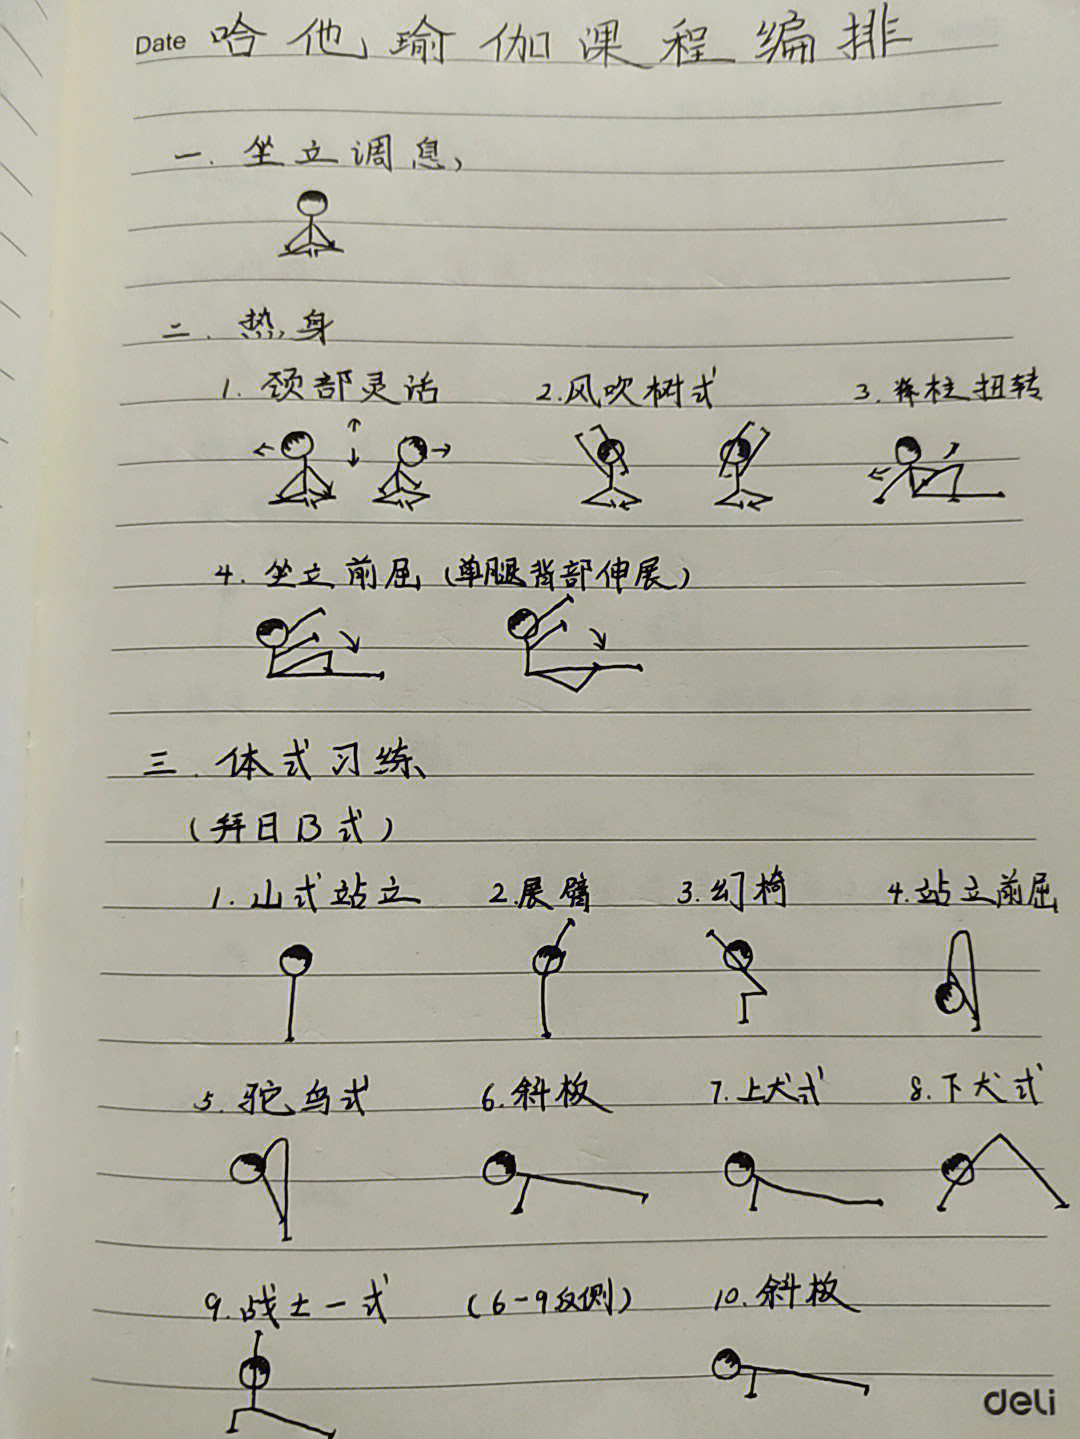 Date 哈他瑜伽课程编排
一.坐立调息、
二.热身
1.颈部灵活 2.风吹树式 3.脊柱扭转
4.坐立前屈(单腿背部伸展)
三.体式习练、
(拜日B式)
1.山式站立 2.展臂 3.幻椅 4.站立前屈
5.驼鸟式 6.斜板 7.上犬式 8.下犬式
9.战士一式 (6-9反侧) 10.斜板
deli